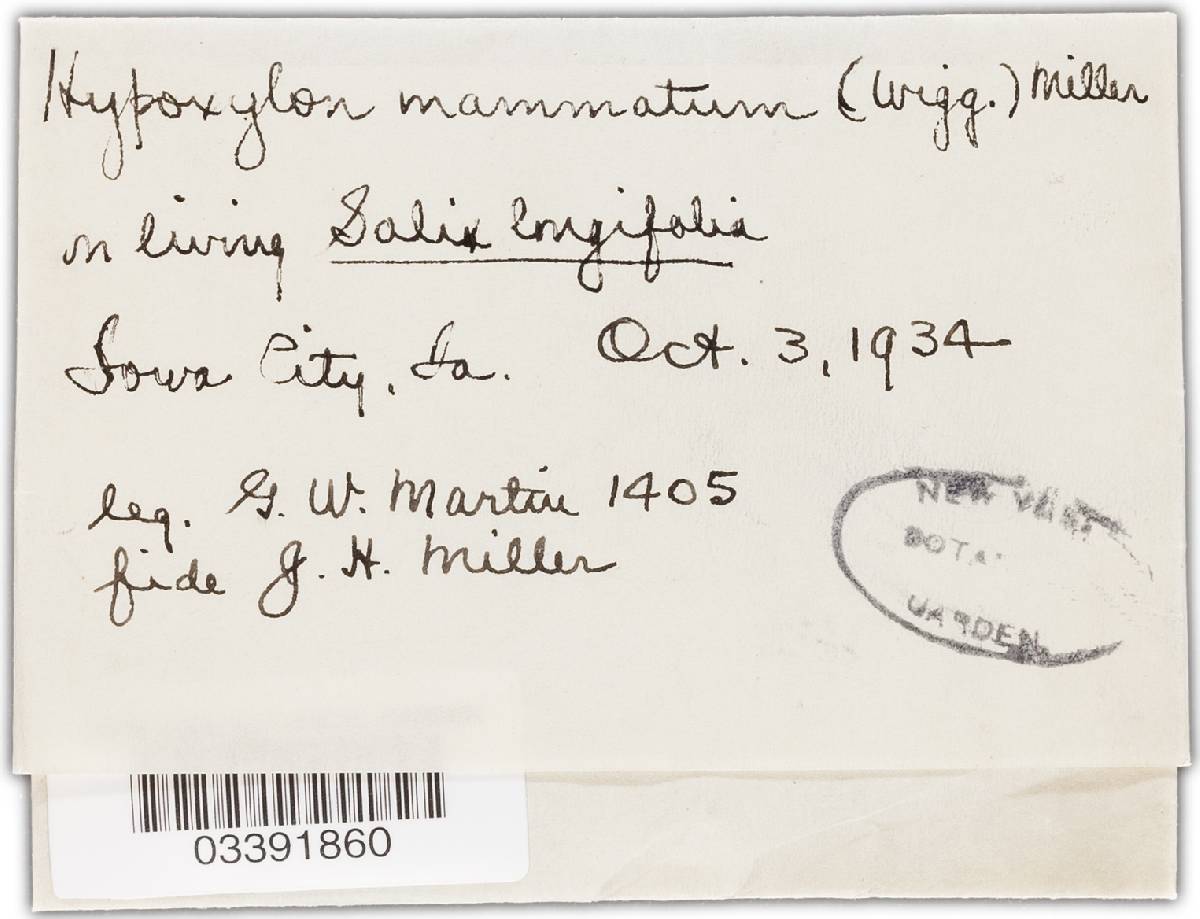 Hypoxylon mammatum (Wigg.) Miller
on living Salix longifolia
Iowa City, Ia. Oct. 3, 1934
leg. G. W. Martin 1405
fide J. H. Miller
NEW YORK
GARDEN
03391860